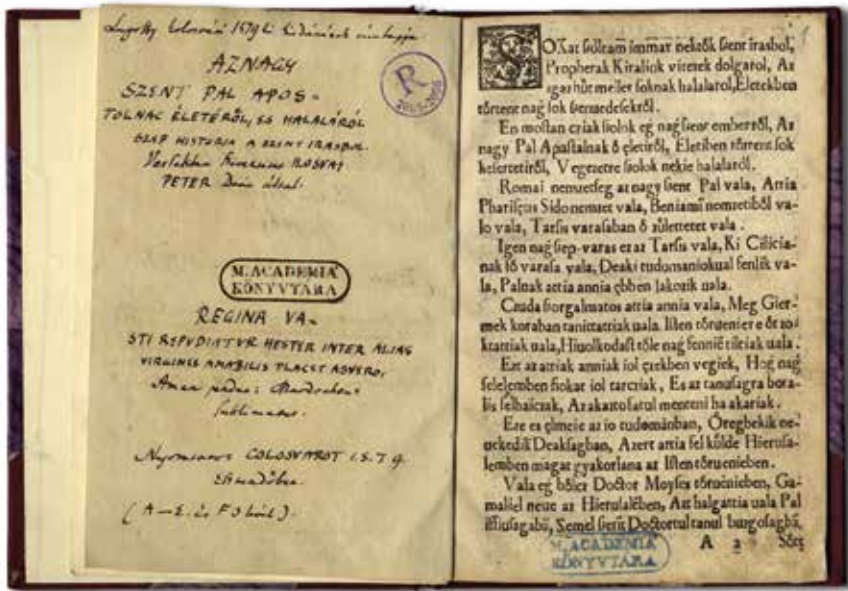 Lugossy kolosvári 1579 ki
AZ NAGY
SZENT PAL APOS-
TOLNAC ÉLETÉRŐL, ES HALALÁROL
SZEP HISTORIA A SZENT IRASBOL
PETER Deac által.
R
M. ACADEMIA
KÖNYVTÁRA
REGINA VA-
STI REPUDIATUR HESTER INTER ALIAS
VIRGINES AMABILIS PLACET ASVERO,
Aman pedus: Mardocheus
sublimatus.
Nyomtatot COLOSVAROT 1.5.7.9.
(A—E. és F
1
SOKat ſoltam immar nektők ſzent irasbol,
Prophetak Kiraliok vitezek dolgarol, Az
igaz hűt mellet ſoknak halalarol, Eletekben
tőrtent nag ſok
En mostan cziak ſiolok eg nag ſzent emberről, Az
nagy Pal Apaſtalnak ő eletiről, Eletiben tőrtent ſok
keſertetiről, Vegezetre ſiolok nekie halalarol.
Romai nemzetſeg az nagy ſzent Pal vala, Attia
Phariſęus Sido nemzet vala, Beniamī nemzetiből va-
lo vala, Tarſis varaſaban ő zűlettetet vala.
Igen nag ſzep varas ez az Tarſis vala, Ki Cilicia-
nak fő varaſa vala, Deaki tudomaniokual fenlik va-
la, Palnak attia annia ębben lakozik uala.
Czuda ſzorgalmatos attia annia vala, Meg Gier-
mek koraban tanittattiak uala. Iſten tőrueniere őt
ktattiak uala,
Ezt az attiak anniak iol ezekben vegiek, Hog nag
felelemben fiokat iol tarcziak, Es az tanuſagra
Az
Eze es elmeie az io tudomānban, Őregbekik ne-
uekedik Deakſagban, Azert attia fel kűlde Hieruſa-
lemben magat gyakorlana az Iſten tőruenieben.
Vala eg bőlcz Doctor Moyſes tőruēnieben, Ga-
maliel neue az Hieruſalēben, Azt halgattia uala Pal
iffiuſagabā, Doctortul tanul
A 2
M. ACADEMIA
KÖNYVTÁRA